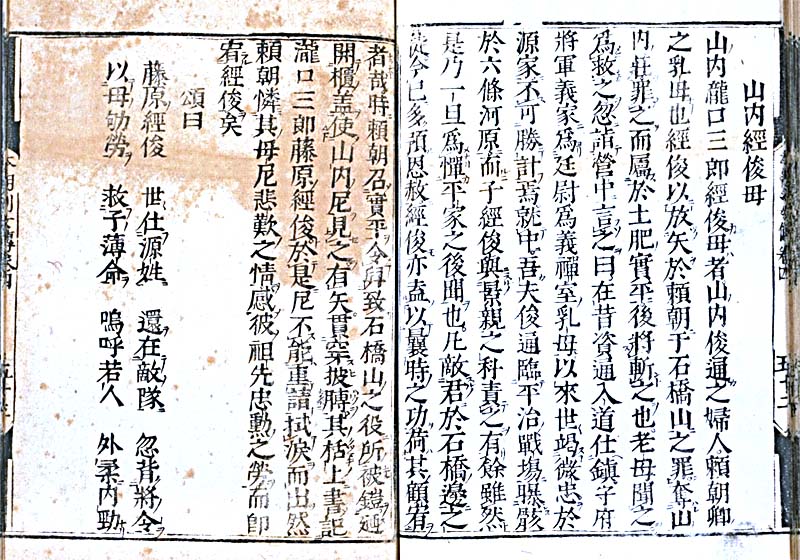 山内經俊母
山内瀧口三郎經俊母者山内俊通之婦人頼朝卿
之乳母也經俊以放矢於頼朝于石橋山之罪奪山
内荘罪之而屬於土肥實平後將斬之也老母聞之
為救之忽詣營中言之曰在昔資通入道仕鎮守府
將軍義家為廷尉爲義禪室乳母以來世竭微忠於
源家不可勝計焉就中吾夫俊通臨平治戰塲曝骸
於六條河原而子經俊與景親之科責之有餘雖然
是乃一旦爲憚平家之後聞也凡敵君於石橋邊之
徒今已多預恩赦經俊亦盍以曩時之功荷其顧眷
者哉時頼朝召實平令舁致石橋山之役所被鎧逈
開櫃盖使山内尼見之有矢貫穿披膊其栝上書記
瀧口三郎藤原經俊於是尼不能重請拭淚而出然
頼朝憐其母尼悲歎之情感彼祖先忠勳之勞而即
宥經俊矣
頌曰
藤原經俊 世仕源姓 還在敵隊 忽背將令
以母劬勞 救子薄命 嗚呼若人 外柔内勁